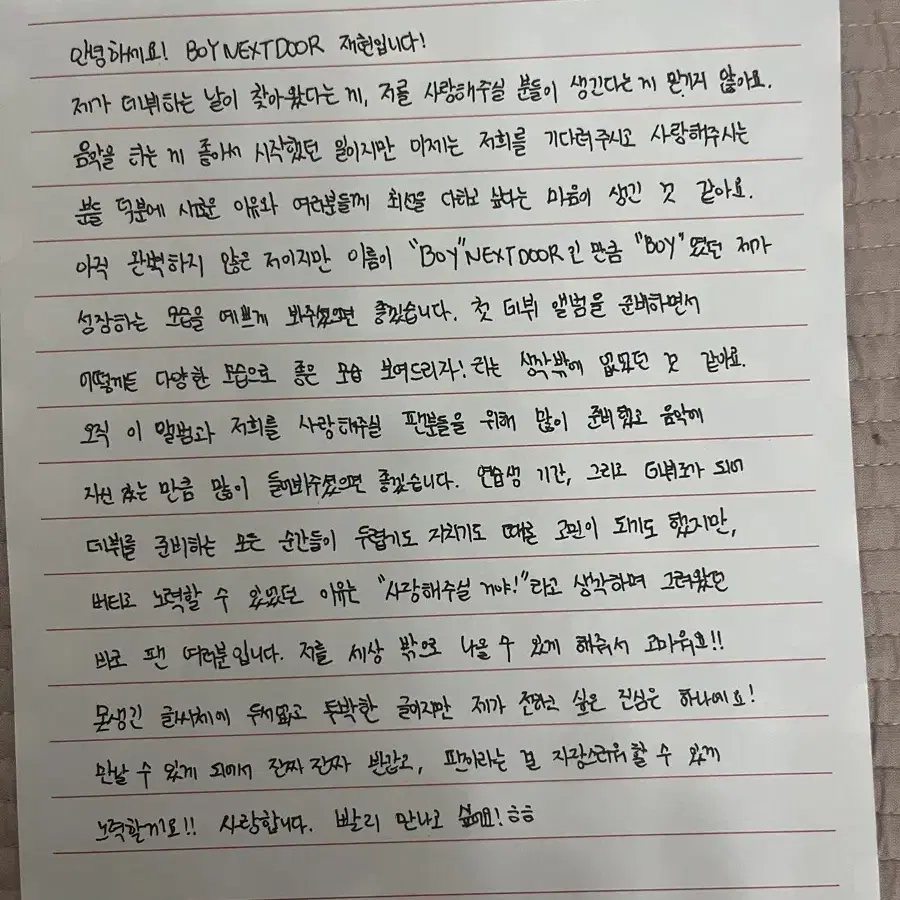 안녕하세요! BOYNEXTDOOR 재현입니다!
제가 데뷔하는 날이 찾아왔다는 게, 저를 사랑해주실 분들이 생긴다는 게 믿기지 않아요.
음악을 하는 게 좋아서 시작했던 일이지만 이제는 저희를 기다려주시고 사랑해주시는
분들 덕분에 새로운 이유와 여러분들께 최선을 다하고 싶다는 마음이 생긴 것 같아요.
아직 완벽하지 않은 저이지만 이름이 "BOY"NEXTDOOR인 만큼 "BOY"였던 제가
성장하는 모습을 예쁘게 봐주셨으면 좋겠습니다. 첫 데뷔 앨범을 준비하면서
어떻게든 다양한 모습으로 좋은 모습 보여드리자! 라는 생각밖에 없었던 것 같아요.
오직 이 앨범과 저희를 사랑해주실 팬분들을 위해 많이 준비했고 음악에
자신 있는 만큼 많이 들어봐주셨으면 좋겠습니다. 연습생 기간, 그리고 데뷔조가 되어
데뷔를 준비하는 모든 순간들이 두렵기도 지치기도 때론 고민이 되기도 했지만,
버티고 노력할 수 있었던 이유는 "사랑해주실 거야!"라고 생각하며 그려왔던
바로 팬 여러분입니다. 저를 세상 밖으로 나올 수 있게 해줘서 고마워요!!
못생긴 글씨체에 두서없고 투박한 글이지만 제가 전하고 싶은 진심은 하나예요!
만날 수 있게 되어서 진짜 진짜 반갑고, 팬이라는 걸 자랑스러워 할 수 있게
노력할게요!! 사랑합니다. 빨리 만나고 싶어요! ㅎㅎ